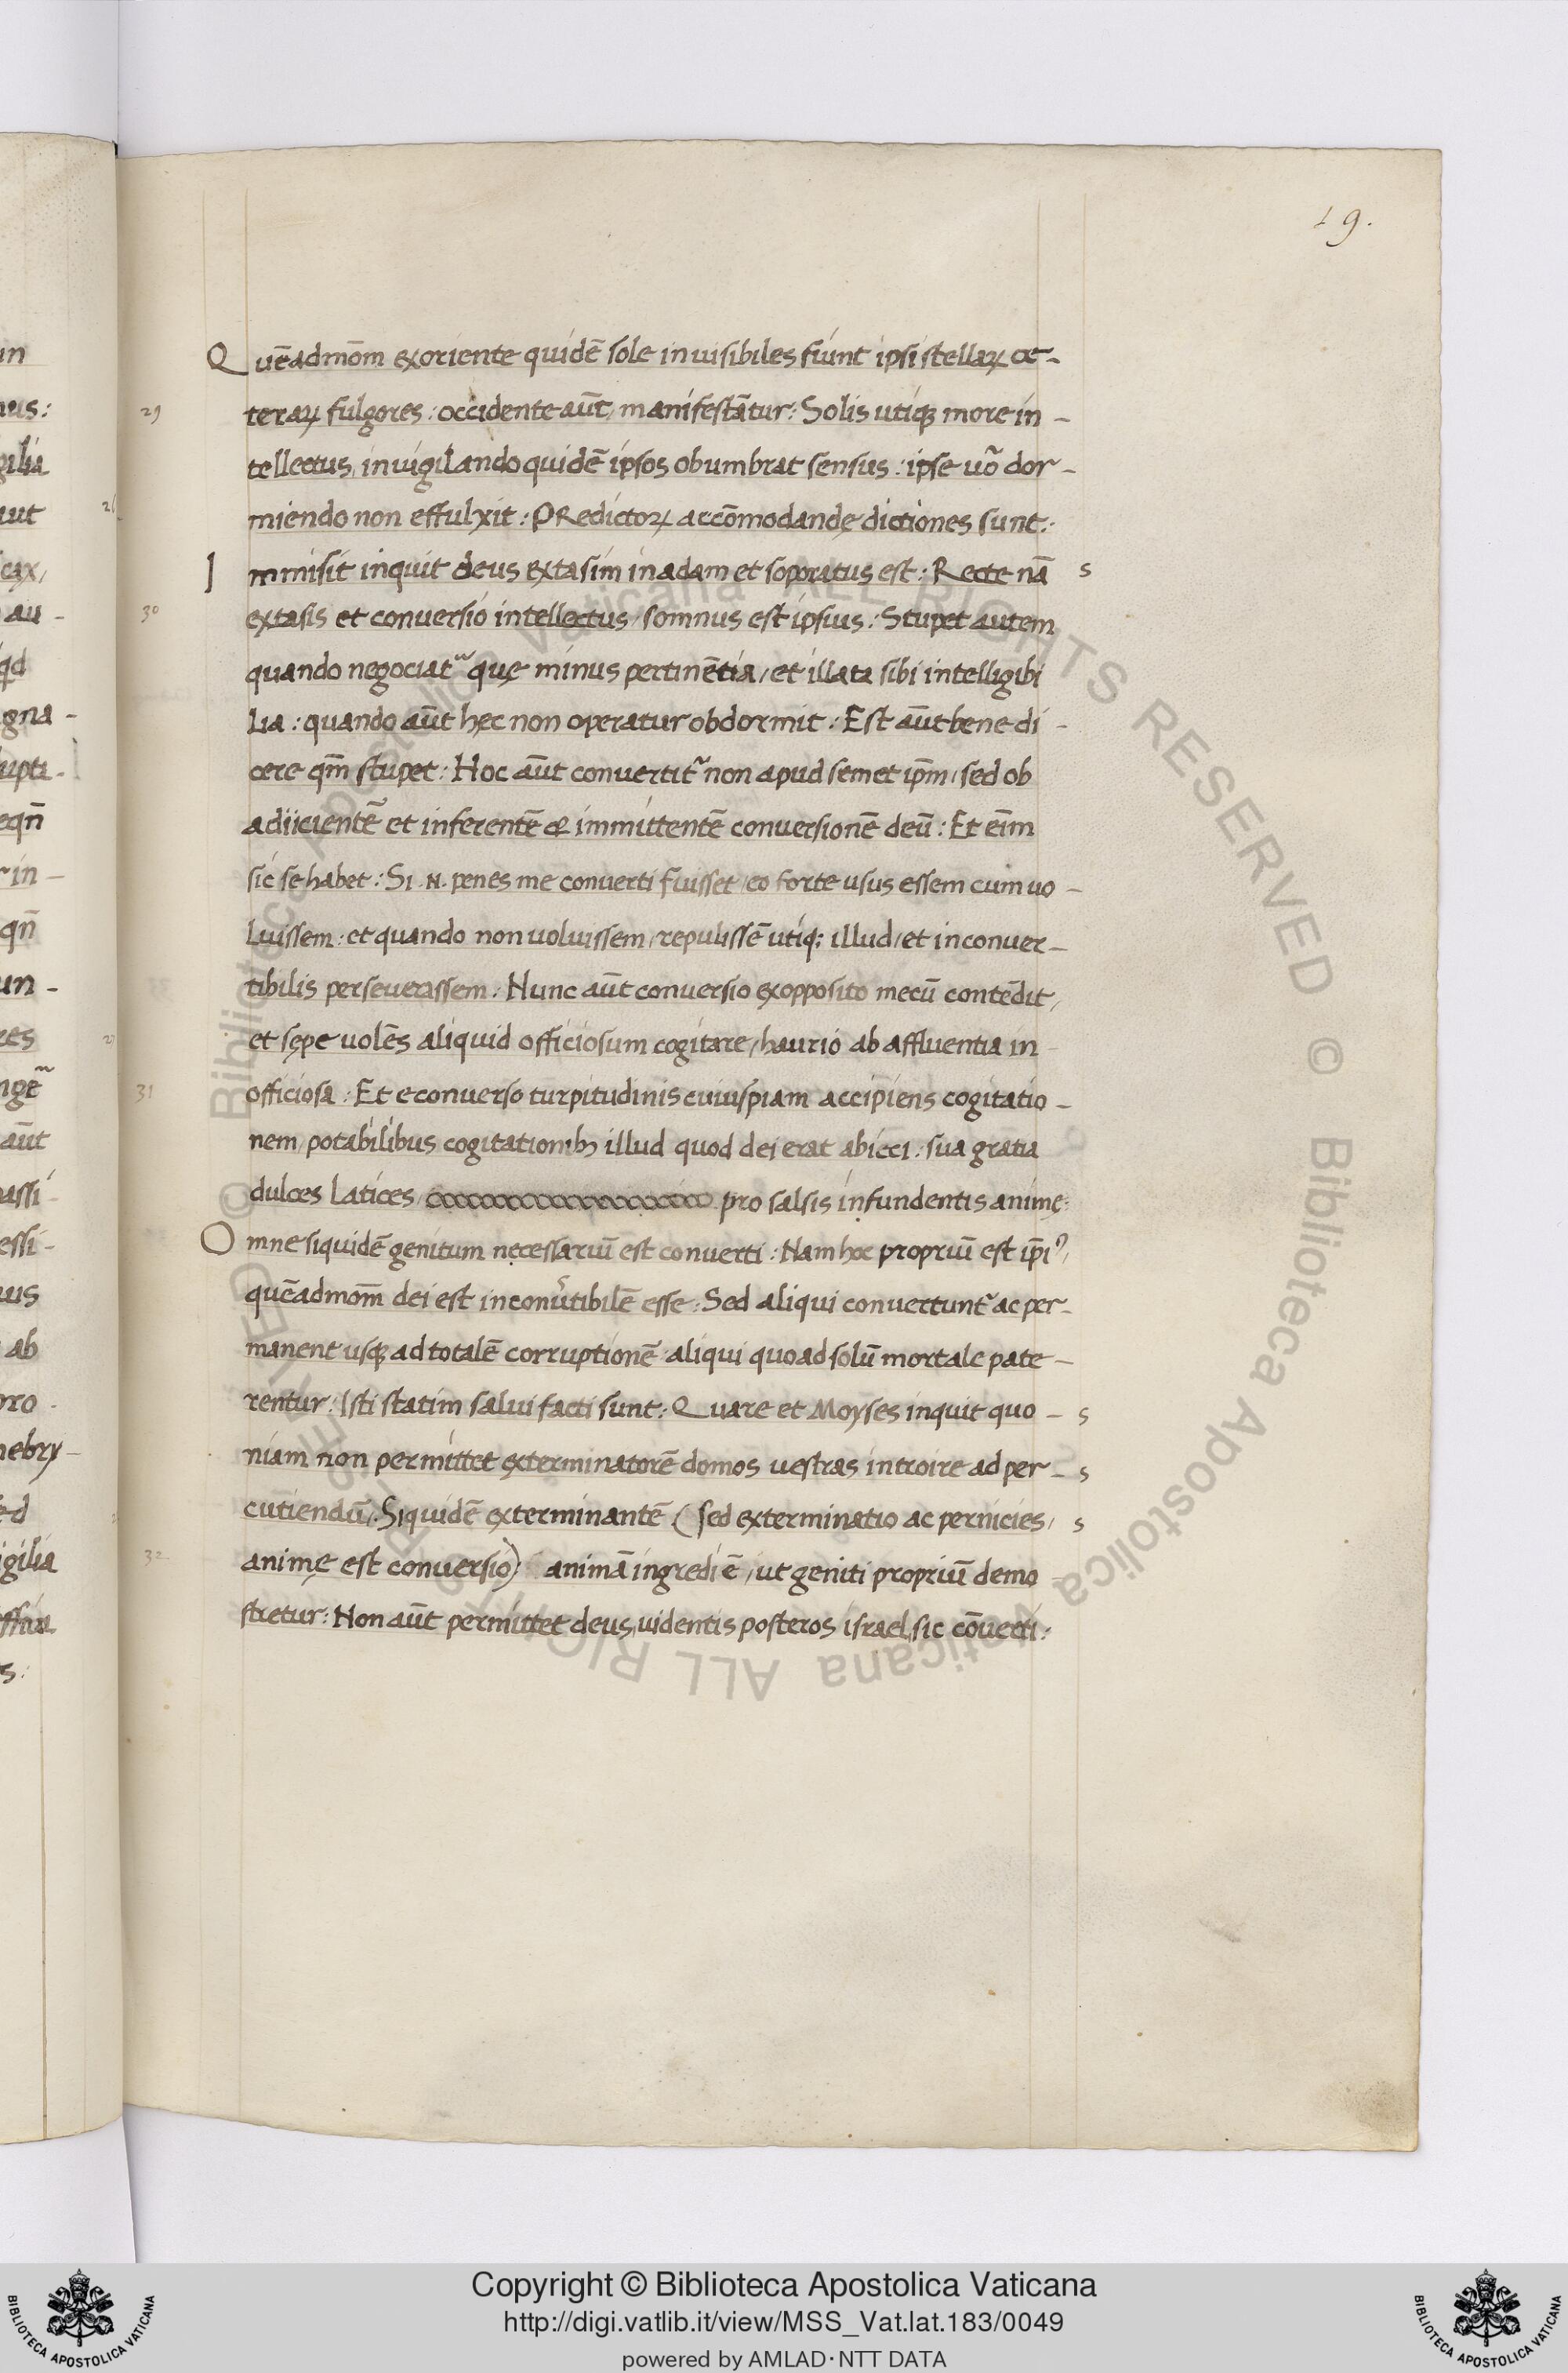 19.
Quēadmom̄ exoriente quidē sole inuisibiles fiunt ipsi stellaꝝ ce-
29
teraꝝ fulgores: occidente aūt, manifestātur: Solis utiqꝫ more in-
tellectus, inuigilando quidē ipsos obumbrat sensus: ipse uo᷎ dor-
miendo non effulxit: PRedictoꝝ accōmodandę dictiones sunt:
Immisit inquit deus extasim in adam et soporatus est: Recte nā s
30
extasis et conuersio intellectus, somnus est ipsius: Stupet autem
quando negociat᷑ quę minus pertinētia, et illata sibi intelligibi
lia: quando aūt hec non operatur obdormit: Est aūt bene di-
cere qm̄ stupet: Hoc aūt conuertit᷑ non apud semet ip̄m, sed ob
adiicientē et inferentē & immittentē conuersionē deū: Et eīm
sic se habet: Si .N. penes me conuerti fuisset, eo forte usus essem cum uo-
luissem: et quando non uoluissem, repulissē utiq; illud, et inconuer-
tibilis perseuerassem: Nunc aūt conuersio exopposito mecū contēdit,
et sępe uolēs aliquid officiosum cogitare, haurio ab affluentia in-
31
officiosa: Et econuerso turpitudinis cuiuspiam accipiens cogitatio-
nem, potabilibus cogitationibꝫ illud quod dei erat abieci: sua gratia
dulces latices, pro salsis infundentis animę:
Omne siquidē genitum necessariū est conuerti: Nam hoc propriū est ip̄iꝰ,
quēadmom̄ dei est inconu̾tibilē esse: Sed aliqui conuertunt᷑ ac per-
manent usqꝫ ad totalē corruptionē aliqui quoad solū mortale pate-
rentur: Isti statim salui facti sunt: Quare et Moyses inquit quo- s
niam non permittet exterminatorē domos uestras introire ad per- s
cutiendū: Siquidē exterminantē (sed exterminatio ac pernicies, s
32
animę est conuersio) animā ingredi ē, ut geniti propriū demo-
stretur: Non aūt permittet deus, uidentis posteros israel, sic cōuerti:
© Biblioteca Apostolica Vaticana ALL RIGHTS RESERVED © Biblioteca Apostolica Vaticana ALL RIGHTS RESERVED
Copyright © Biblioteca Apostolica Vaticana
http://digi.vatlib.it/view/MSS_Vat.lat.183/0049
powered by AMLAD·NTT DATA
BIBLIOTECA APOSTOLICA VATICANA
BIBLIOTECA APOSTOLICA VATICANA